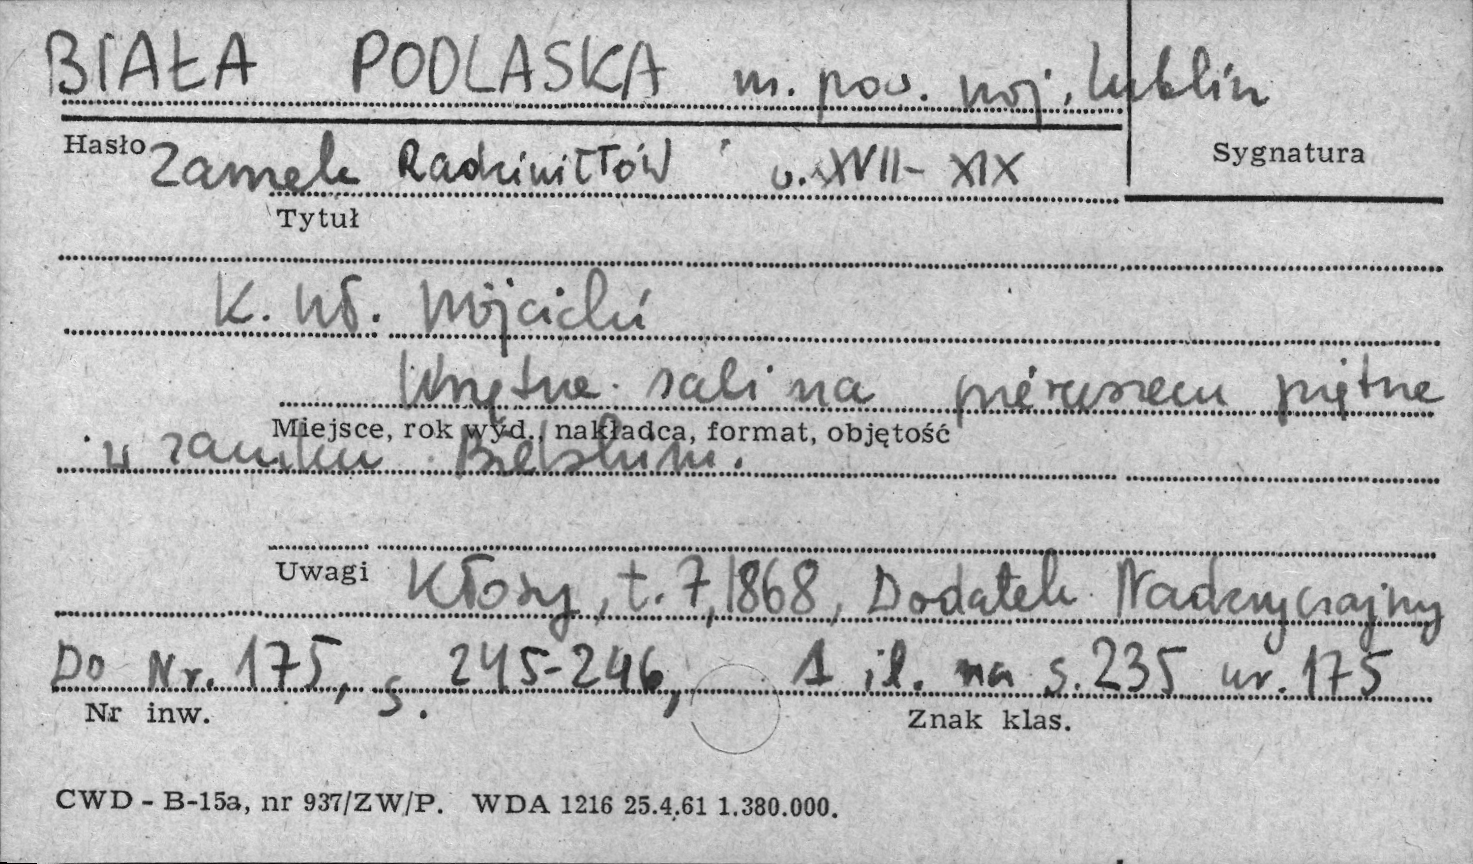 BIAŁA PODLASKA m. pow. woj. Lublin
Hasło Zamek Radziwiłłów w. XVII-XIX
Sygnatura
Tytuł
K. Wł. Wójcicki
Wnętrze sali na piérwszem piętrze
Miejsce, rok wyd., nakładca, format, objętość
w zamku Bielskim.
Uwagi Kłosy, t. 7, 1868, Dodatek Nadzwyczajny
Do Nr. 175, s. 245-246, 1 il. na s. 235 nr. 175
Nr inw. Znak klas.
CWD - B-15a, nr 937/ZW/P. WDA 1216 25.4.61 1.380.000.